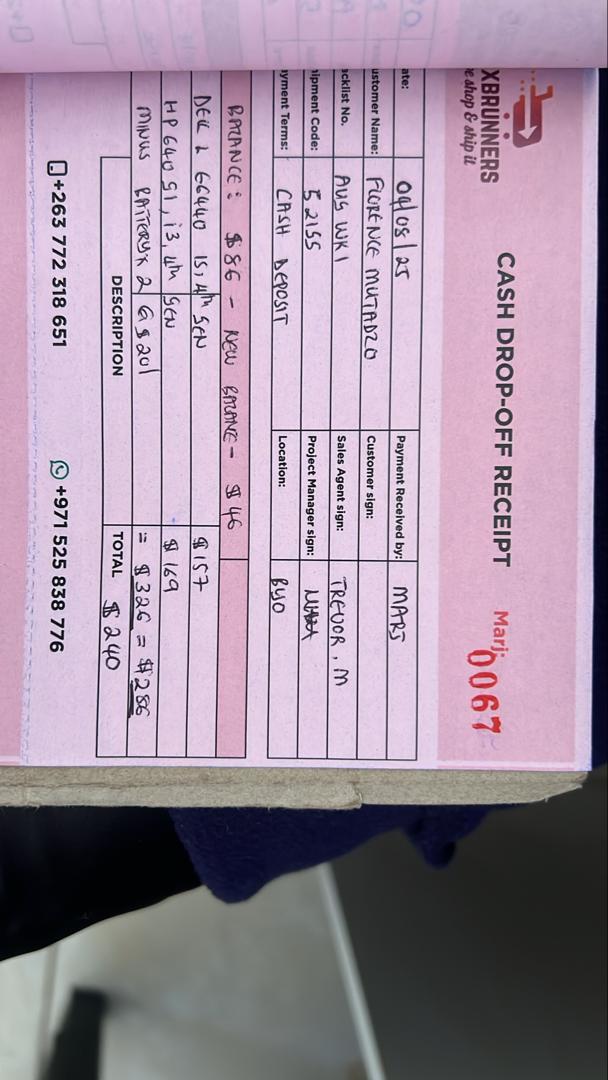 XBRUNNERS
e shop & ship it
CASH DROP-OFF RECEIPT
Marj:
0067
ate: 04/08/25 Payment Received by: MARJ
ustomer Name: FLORENCE MUTADZO Customer sign:
cklist No. AUG WK1 Sales Agent sign: TREVOR . M
hipment Code: 52155 Project Manager sign:
yment Terms: CASH DEPOSIT Location: BYO
BALANCE: $86 - NEW BALANCE - $46
DELL E6440 i5, 4th GEN $157
HP 640 G1, i3, 4th GEN $169
MINUS BATTERY X 2 @ $20/ = $326 = $286
DESCRIPTION TOTAL $240
+263 772 318 651 +971 525 838 776